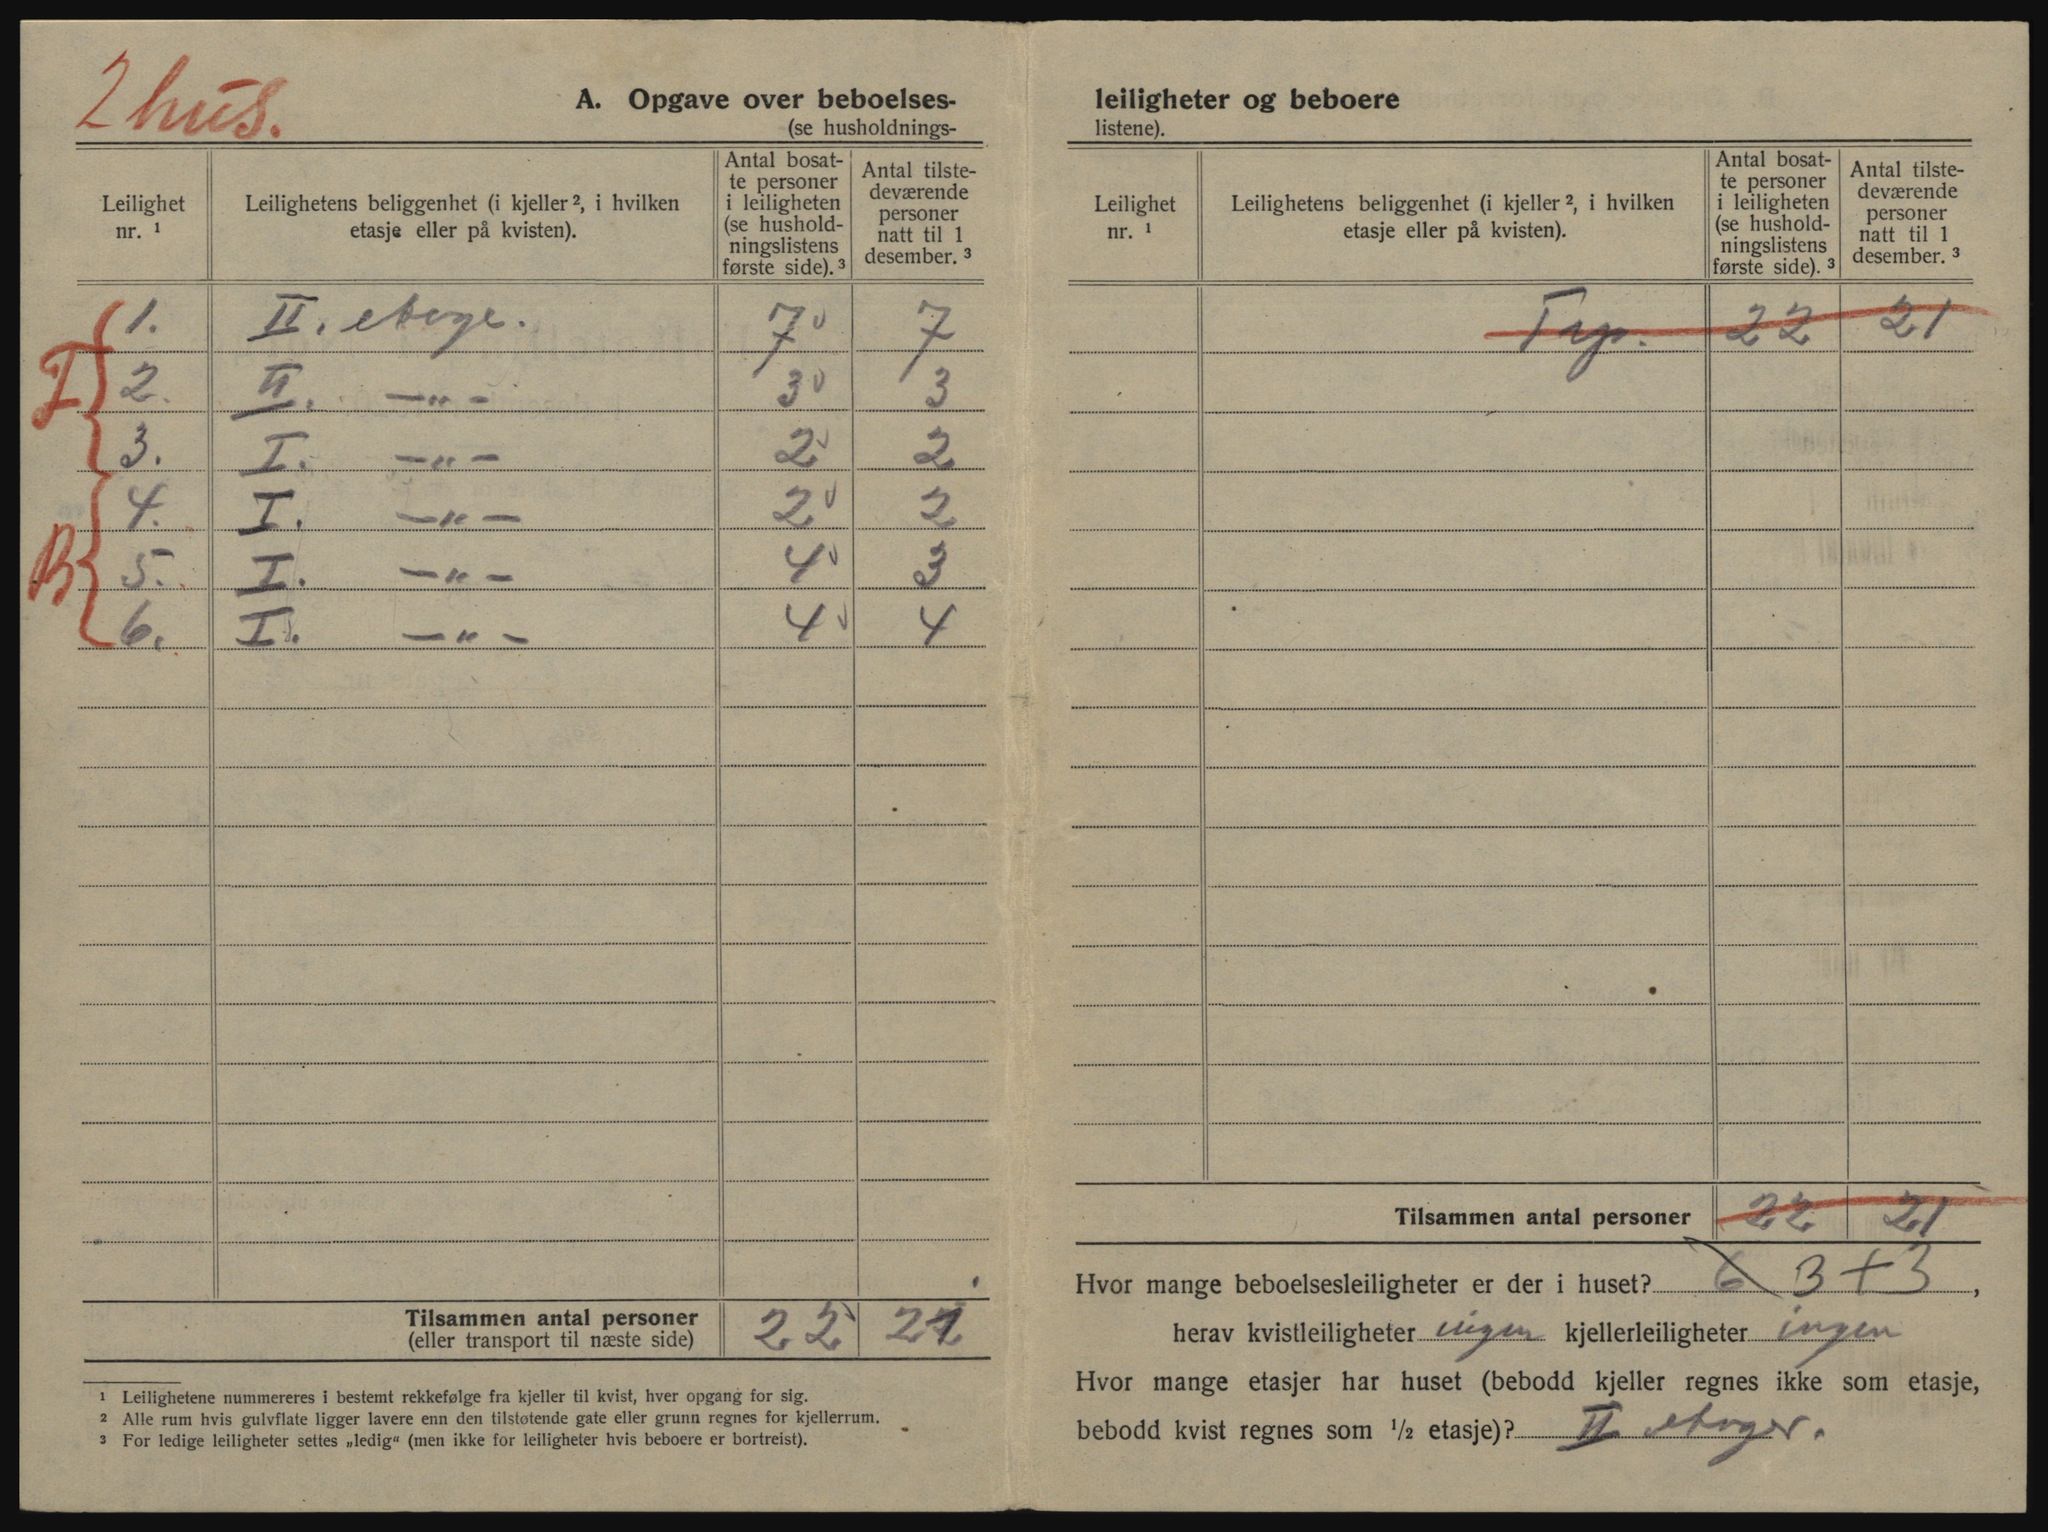 2 hus.
A. Opgave over beboelses-
(se husholdnings-
Leilighet nr. ¹
Leilighetens beliggenhet (i kjeller ², i hvilken etasje eller på kvisten).
Antal bosat-te personer i leiligheten (se hushold-ningslistens første side). ³
Antal tilste-deværende personer natt til 1 desember. ³
1. II. etage. 7 7
2. II. —"— 3 3
3. I. —"— 2 2
4. I. —"— 2 2
5. I. —"— 4 3
6. I. —"— 4 4
B
Tilsammen antal personer 22 21
(eller transport til næste side)
¹ Leilighetene nummereres i bestemt rekkefølge fra kjeller til kvist, hver opgang for sig.
² Alle rum hvis gulvflate ligger lavere enn den tilstøtende gate eller grunn regnes for kjellerrum.
³ For ledige leiligheter settes „ledig“ (men ikke for leiligheter hvis beboere er bortreist).
leiligheter og beboere
listene).
Leilighet nr. ¹
Leilighetens beliggenhet (i kjeller ², i hvilken etasje eller på kvisten).
Antal bosat-te personer i leiligheten (se hushold-ningslistens første side). ³
Antal tilste-deværende personer natt til 1 desember. ³
22 21
Tilsammen antal personer 22 21
Hvor mange beboelsesleiligheter er der i huset? 6 3+3,
herav kvistleiligheter ingen kjellerleiligheter ingen
Hvor mange etasjer har huset (bebodd kjeller regnes ikke som etasje,
bebodd kvist regnes som ½ etasje)? II etager.